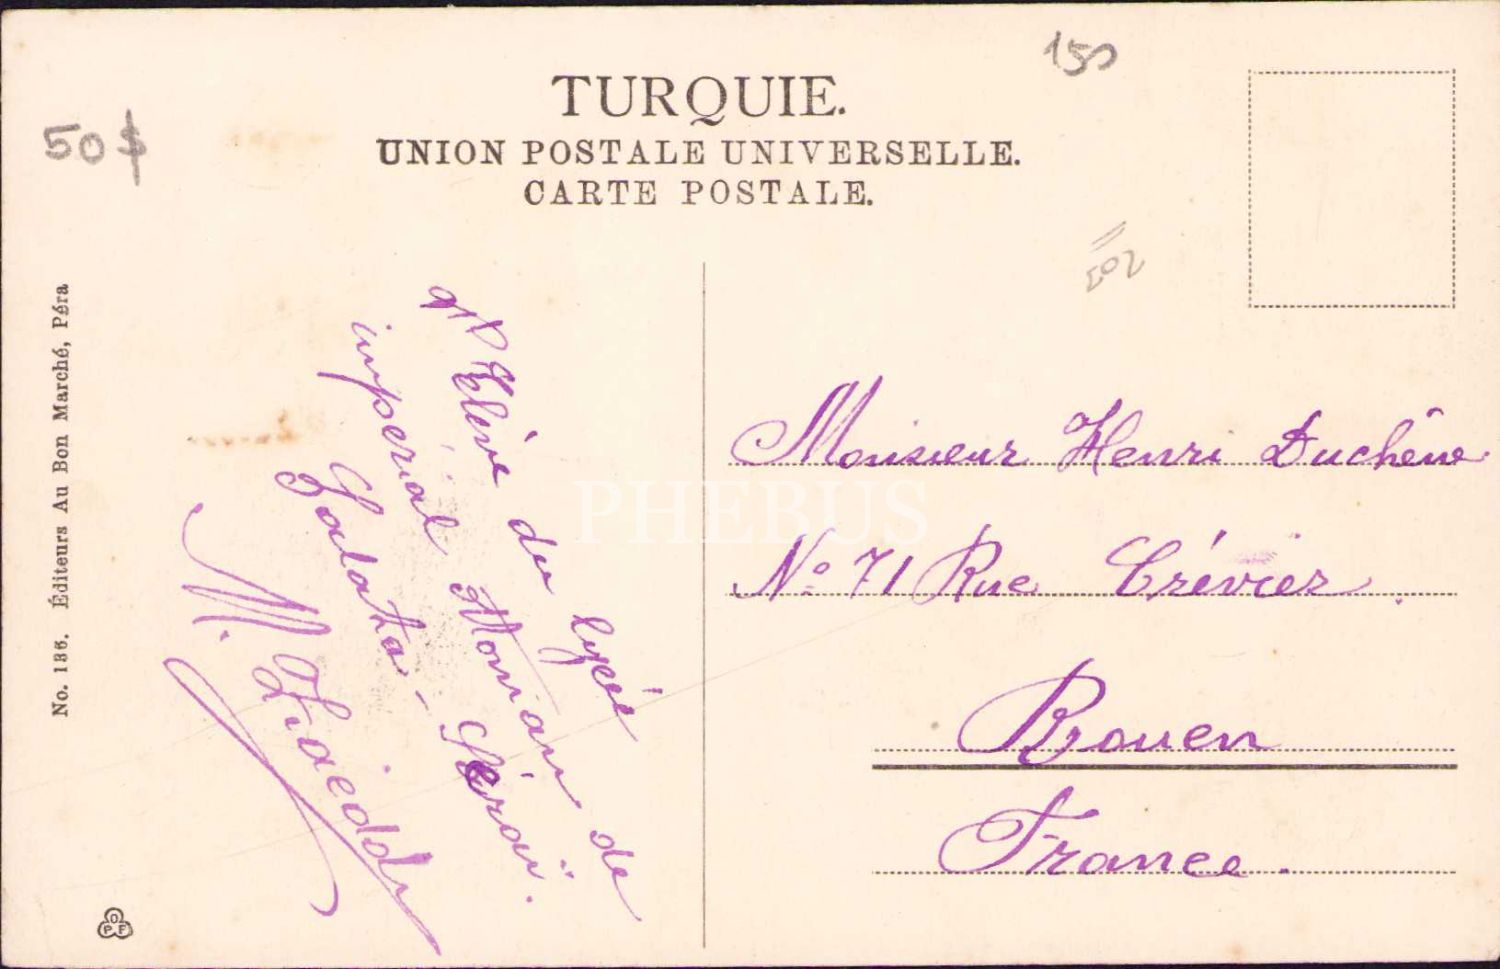 150
50$
TURQUIE.
UNION POSTALE UNIVERSELLE.
CARTE POSTALE.
502
No. 136. Éditeurs Au Bon Marché, Péra
Elève du lycée
impérial Ottoman de
Galata-Séraï.
M. Ziaeddin
Monsieur Henri Duchêne
No 71 Rue Crévier.
Rouen
France.
PHEBUS
O
P F